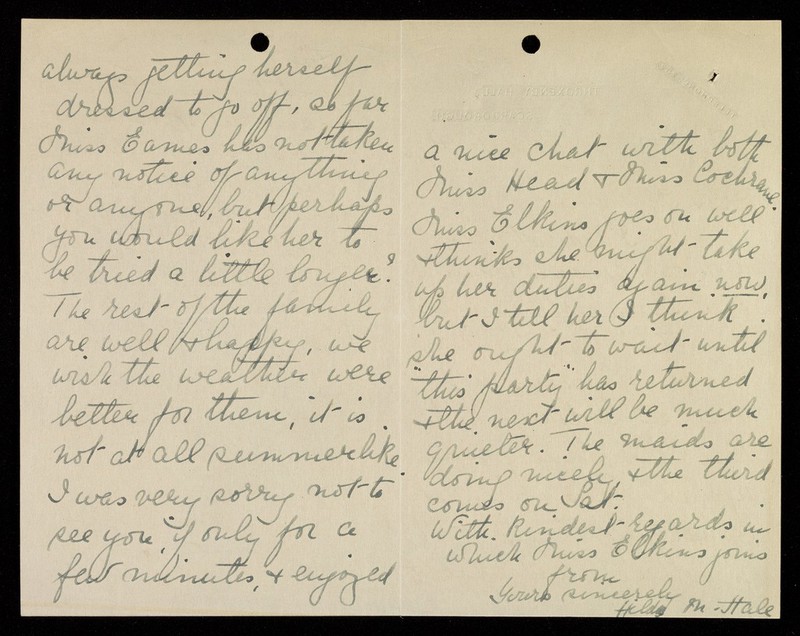 always getting herself
dressed to go off, so far
Miss Eames has not taken
any notice of anything
or anyone, but perhaps
you would like her to
be tried a little longer?
The rest of the family
are well & happy, we
wish the weather were
better for them, it is
not at all summerlike.
I was very sorry not to
see you, if only for a
few minutes, & enjoyed
a nice chat with both
Miss Head & Miss Cochrane.
Miss Elkins goes on well
& thinks she might take
up her duties again now,
but I tell her I think
she ought to wait until
"this party" has returned
& the next will be much
quieter. The maids are
doing nicely, & the third
comes on Sat.
With kindest regards in
which Miss Elkins joins
from
Yours sincerely
Hilda M. Hale